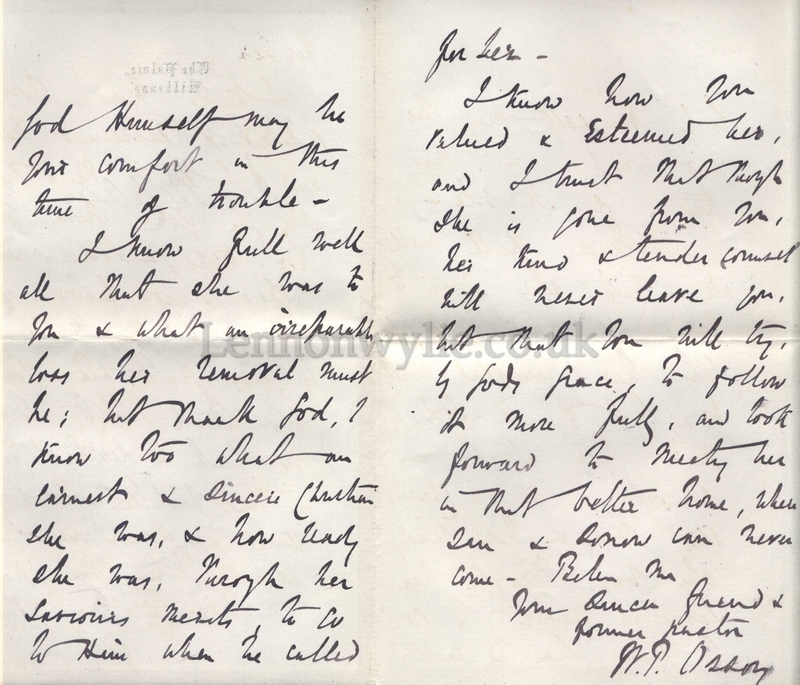 The Palace,
Kilkenny
God Himself may be
your comfort in this
time of trouble -
I know full well
all that she was to
you & what an irreparable
loss her removal must
be; but thank God, I
know too what an
earnest & sincere Christian
she was, & how ready
she was, through her
Saviours merits, to go
to Him when he called
for her -
I know how you
valued & esteemed her,
and I trust that though
she is gone from you,
her kind & tender counsel
will never leave you,
but that you will try,
by Gods grace, to follow
it more fully, and look
forward to meeting her
in that better home, where
sin & sorrow can never
come - Believe me
Your sincere friend &
former pastor
W.P. Ossory
Lennonwylie.co.uk